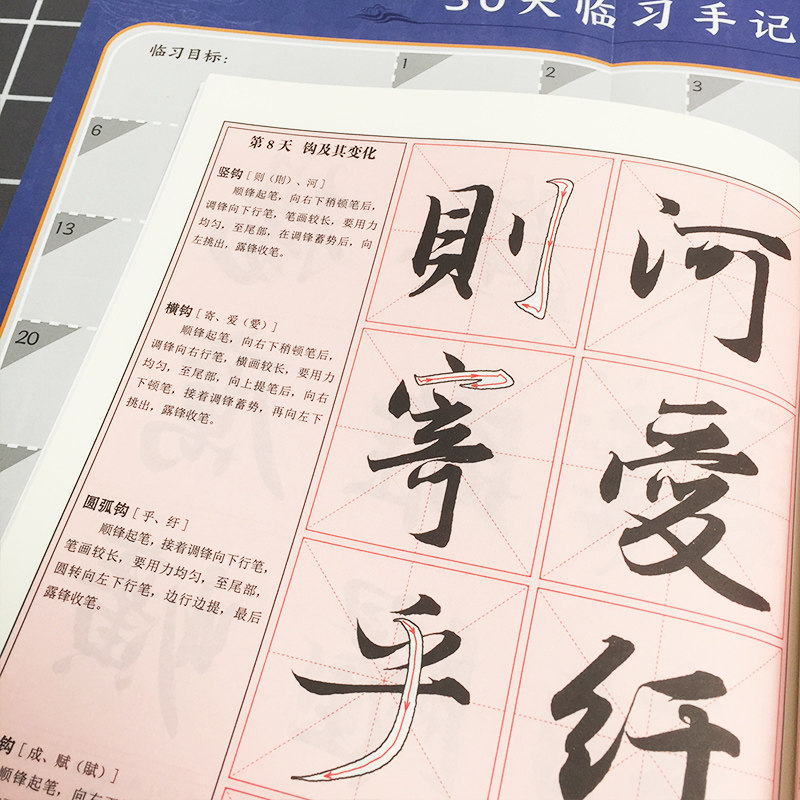 30天临习手记
临习目标：
1
2
3
6
13
20
第8天 钩及其变化
竖钩［则（則）、河］
顺锋起笔，向右下稍顿笔后，
调锋向下行笔，笔画较长，要用力
均匀，至尾部，在调锋蓄势后，向
左挑出，露锋收笔。
横钩［寄、爱（愛）］
顺锋起笔，向右下稍顿笔后，
调锋向右行笔，横画较长，要用力
均匀，至尾部，向上提笔后，向右
下顿笔，接着调锋蓄势，再向左下
挑出，露锋收笔。
圆弧钩［乎、纡］
顺锋起笔，接着调锋向下行笔，
笔画较长，要用力均匀，至尾部，
圆转向左下行笔，边行边提，最后
露锋收笔。
钩［成、赋（賦）］
顺锋起笔，向右下
則 河
寄 愛
乎 纡